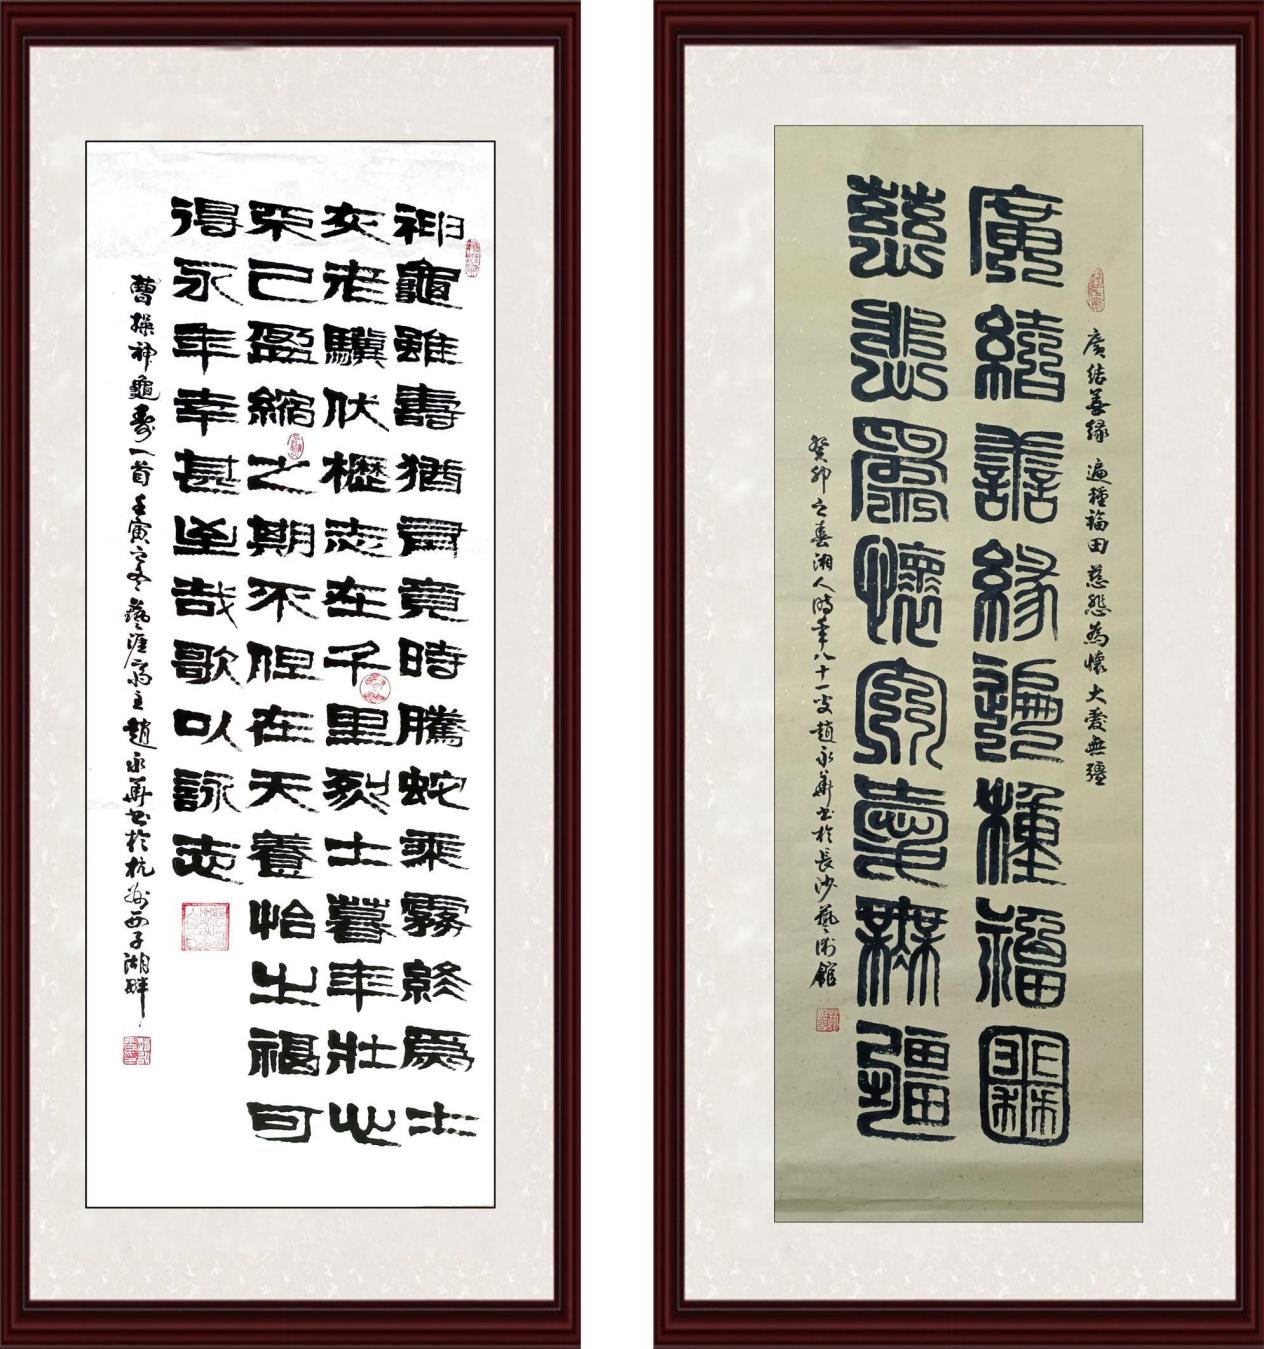 神龜雖壽猶有竟時騰蛇乘霧終為土
灰老驥伏櫪志在千里烈士暮年壯心
不已盈縮之期不但在天養怡之福可
得永年幸甚至哉歌以詠志
曹操神龜壽一首壬寅之冬藝涯齋主趙永華書於杭州西子湖畔
廣結善緣 遍種福田 慈悲為懷 大愛無疆
廣結善緣遍種福田
慈悲為懷大愛無疆
癸卯之春湘人時年八十一叟趙永華書於長沙藝術館